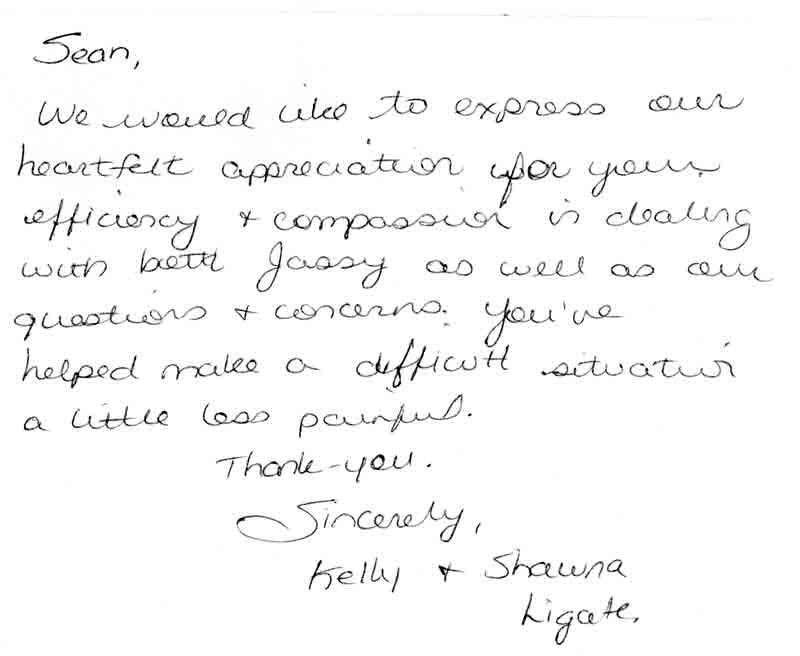 Sean,
We would like to express our
heartfelt appreciation for your
efficiency + compassion in dealing
with both Jassy as well as our
questions + concerns. You've
helped make a difficult situation
a little less painful.
Thank-you.
Sincerely,
Kelly + Shawna
Ligate.